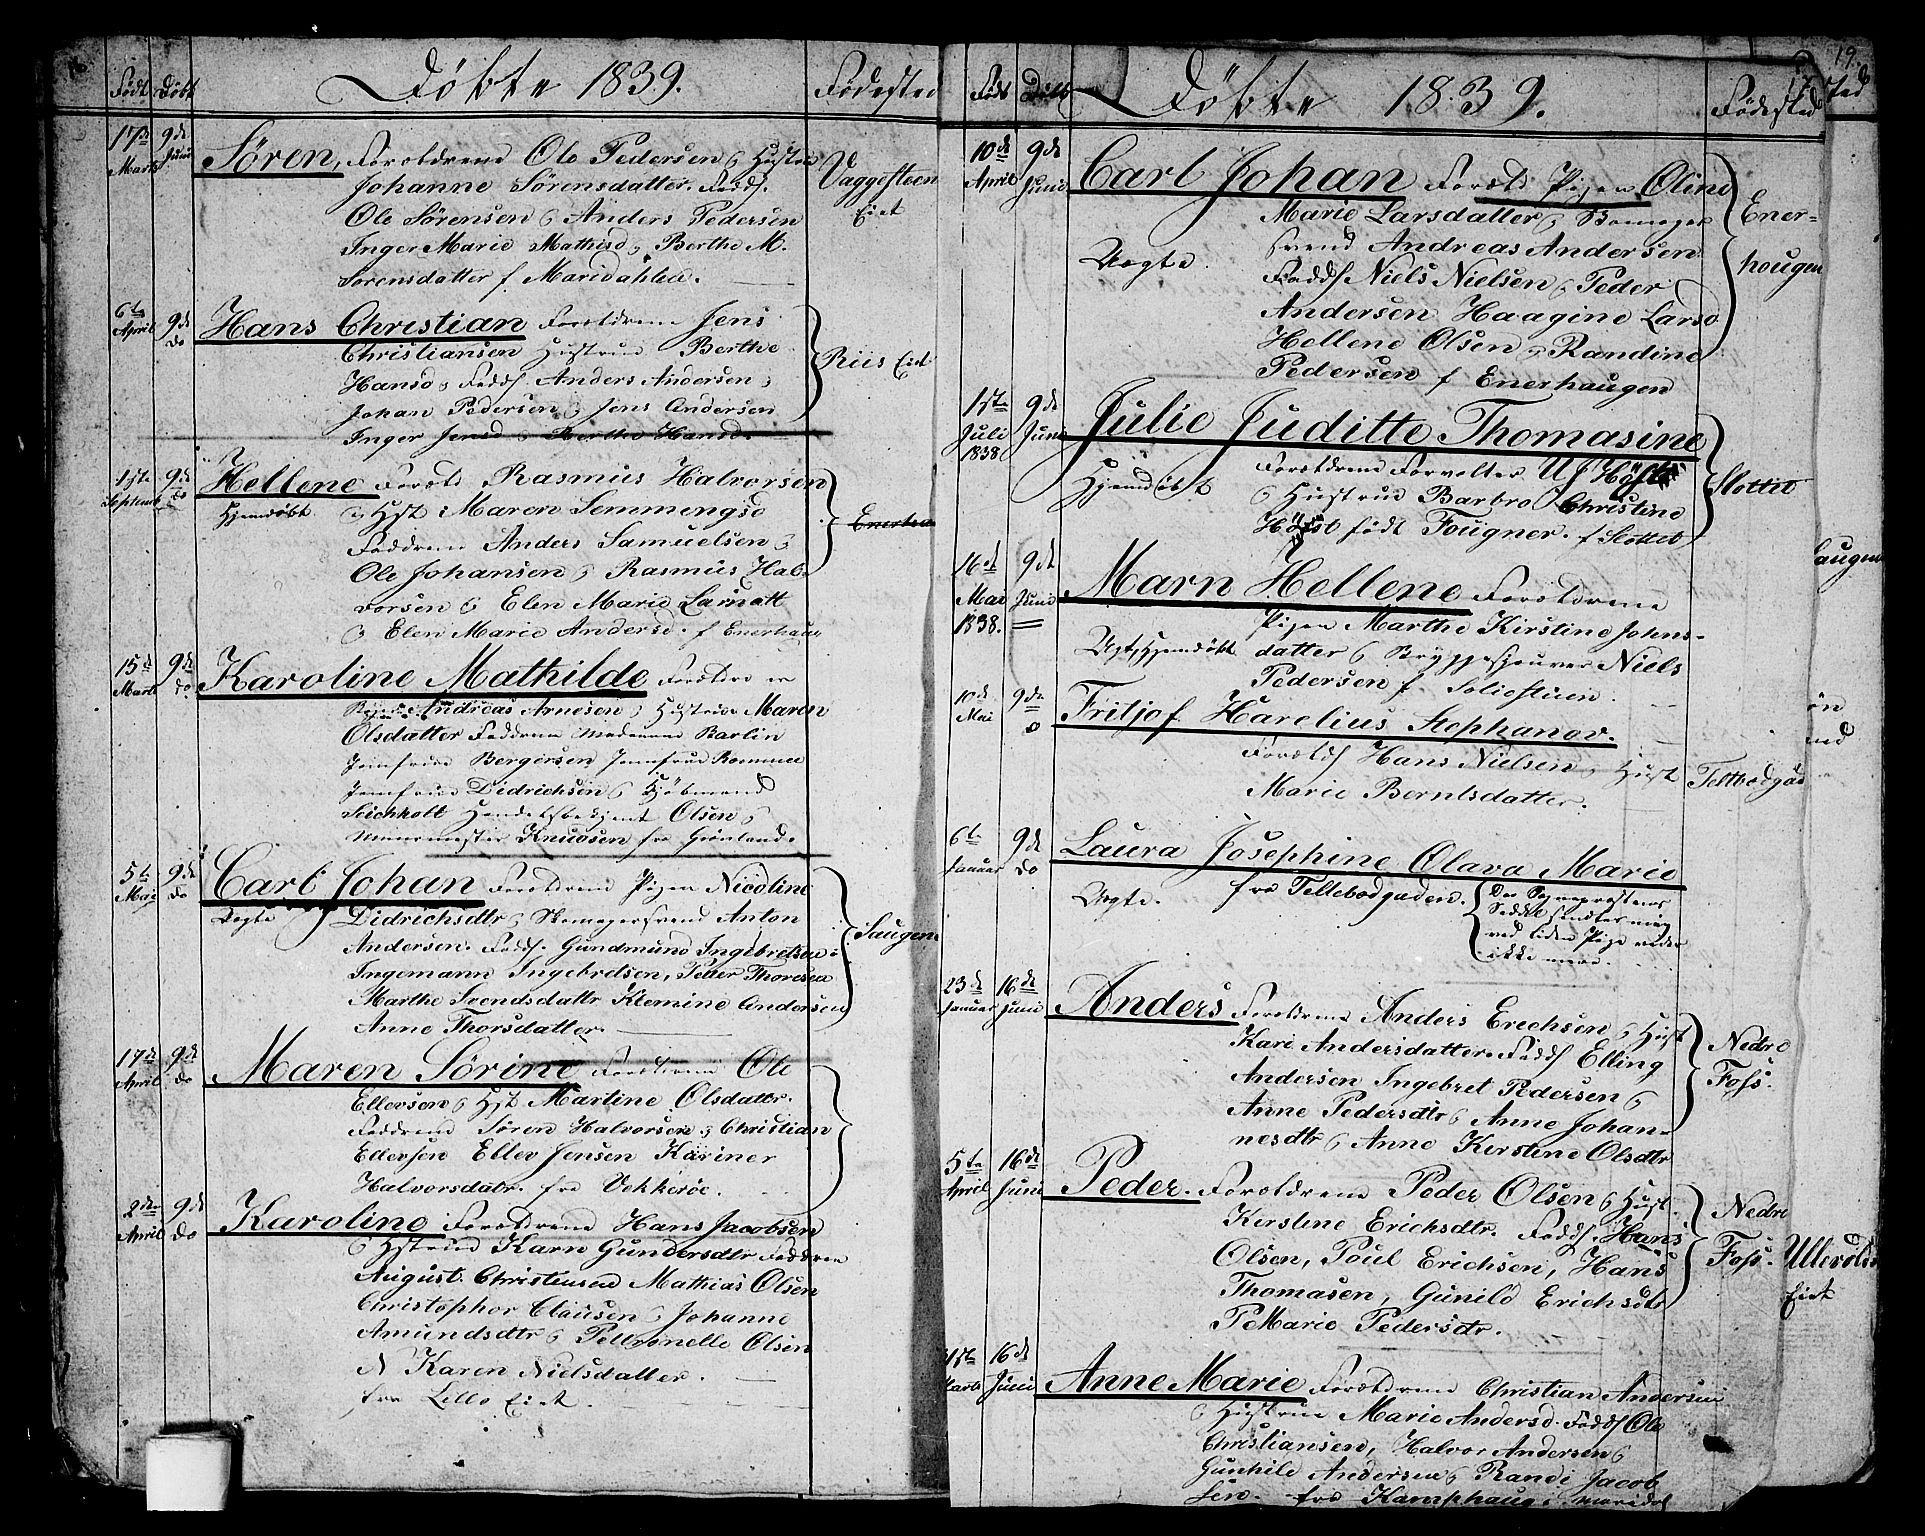 Født Döbt Döbte 1839. Fødested
17de Marts 9de Juni Sören, Forældrene Ole Pedersen & Hustru Vaggesteen Eiet
Johanne Sörensdatter. Fadd.
Ole Sörensen & Anders Pedersen
Inger Marie Mathisd & Berthe M.
Sørensdatter f Maridahlen.
6te April 9de do Hans Christian Forældrene Jens
Christiansen Hustrue Berthe Riis Eiet
Hansd & Fadd. Anders Andersen &
Johan Pedersen & Jens Andersen
Inger Jensd & Berthe Hansd.
1ste Septemb 9de do Hellene Foræld Rasmus Halvorsen
Hjemdöbt & Hst: Maren Semmengsd Enerhau
Faddrene Anders Samuelsen &
Ole Johansen & Rasmus Hal-
vorsen & Elen Marie
& Elen Marie Andersd. f Enerhaug
15de Marts 9de do Karoline Mathilde Forældre er
Andreas Arnesen & Hustrue Maren
Olsdatter Faddrene Madamme Barlin
Jomfrue Bergersen Jomfrue
Jomfrue Didrichsen & Kjöbmand
Seichholt Handelsbetjent Olsen &
Muurmester Knudsen fra Grönland.
5te Mai 9de do Carl Johan Forældrene Pigen Nicoline
Uægte Didrichsdtr & Skomagersvend Anton Haugen.
Andersen. Fadd. Gundmund Ingebretsen
Ingemann Ingebretsen, Petter Thoresen
Marthe Svendsdattr Klemine Andersen
Anne Thorsdatter
17de April 9de do Maren Sörine Forældrene Ole
Ellevsen & Hst Martine Olsdattr.
Faddrene Sören Halvorsen & Christian
Ellevsen Ellev Jensen Kariner
Halvorsdatr. fra Vekkeröe.
2den April 9de do Karoline Forældrene Hans Jacobsen
& Hstrue Karn Gundersdtr Faddrene
August Christensen Mathias Olsen
Christopher Clausen & Johanne
Amundsdtr & Pettronelle Olsen
N Karen Nielsdatter.
fra Lillo Eiet.
Født Döbt Döbte 1839. Fødested
10de April 9de Juni Carl Johan Foræld Pigen Oline
Marie Larsdatter & Ener-
Uægte. svend Andreas Andersen hougen
Fadd Niels Nielsen & Peder
Andersen Haagine Larsd
Hellene Olsen & Randine
Pedersen f Enerhaugen
1ste Juli 1838 9de Juni Julie Juditte Thomasine
Hjemdöbt Forældrene Forvalter Ul Höst Slottet
& Hustrue Barbro Christine
Höst födt Fougner. f Slottet
16de Mai 1838. 9de Juni Marn Hellene Forældrene
Pigen Marthe Kirstine Johns-
Uægt, Hjemdöbt datter & Bryggesjouver Niels
Pedersen f
10de Mai 9de do Fritjof Harelius Stephanov.
Foræld Hans Nielsen & Hust Teltbodgad
Marie Berntsdatter.
6te Januar 9de do Laura Josephine Olava Marie
Uægte. fra Teltebodgaden. Den
Seddel
ved liden Pige veder
ikke mere.
23de Januar 16de Juni Anders Forældrene Anders Erechsen & Hust Nedre Foss.
Kari Andersdatter Fadd Elling
Andersen Ingebret Pedersen &
Anne Pedersdtr & Anne Johan-
nesdtr & Anne Kerstene Olsdtr
5te April 16de Juni Peder. Forældrene Peder Olsen & Hust. Nedre Foss.
Kerstene Erichsdtr. Fadd. Hans
Olsen, Poul Erichsen, Hans
Thomasen, Gunild Erichsdtr
P Marie Pedersdtr.
Marts 16de Juni Anne Marie Forældrene Christian Andersen
& Hustrue Marie Andersd. Fadd Ole
Christiansen, Halvor Andersen &
Gunhild Andersen & Randi Jacob
sen. fra Kamphaug i Maridal
19.
sted
augen
Ullevold
Eiet